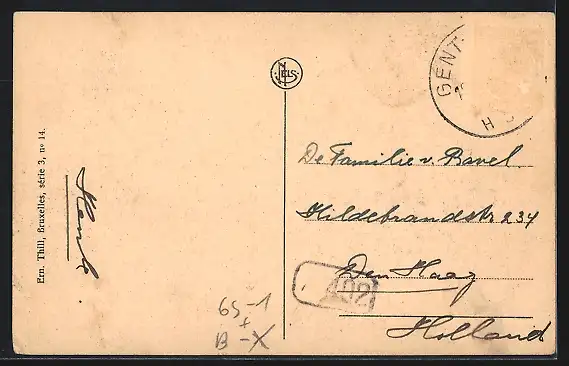 Ern. Thill, Bruxelles, série 3, nº 14.
Henk.
NELS
GENT
H
De Familie v. Bavel
Hildebrandstr 234
Den Haag
Holland
65-1
x
B-X